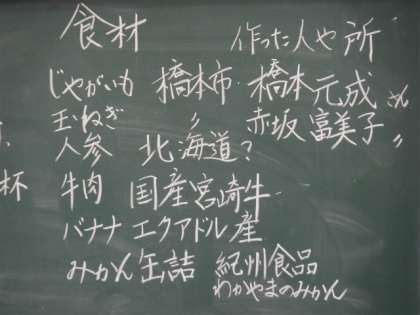 食材 作った人や所
じゃがいも 橋本市 橋本元成さん
玉ねぎ 〃 赤坂富美子〃
人参 北海道?
杯 牛肉 国産宮崎牛
バナナ エクアドル産
みかん缶詰 紀州食品
わかやまのみかん